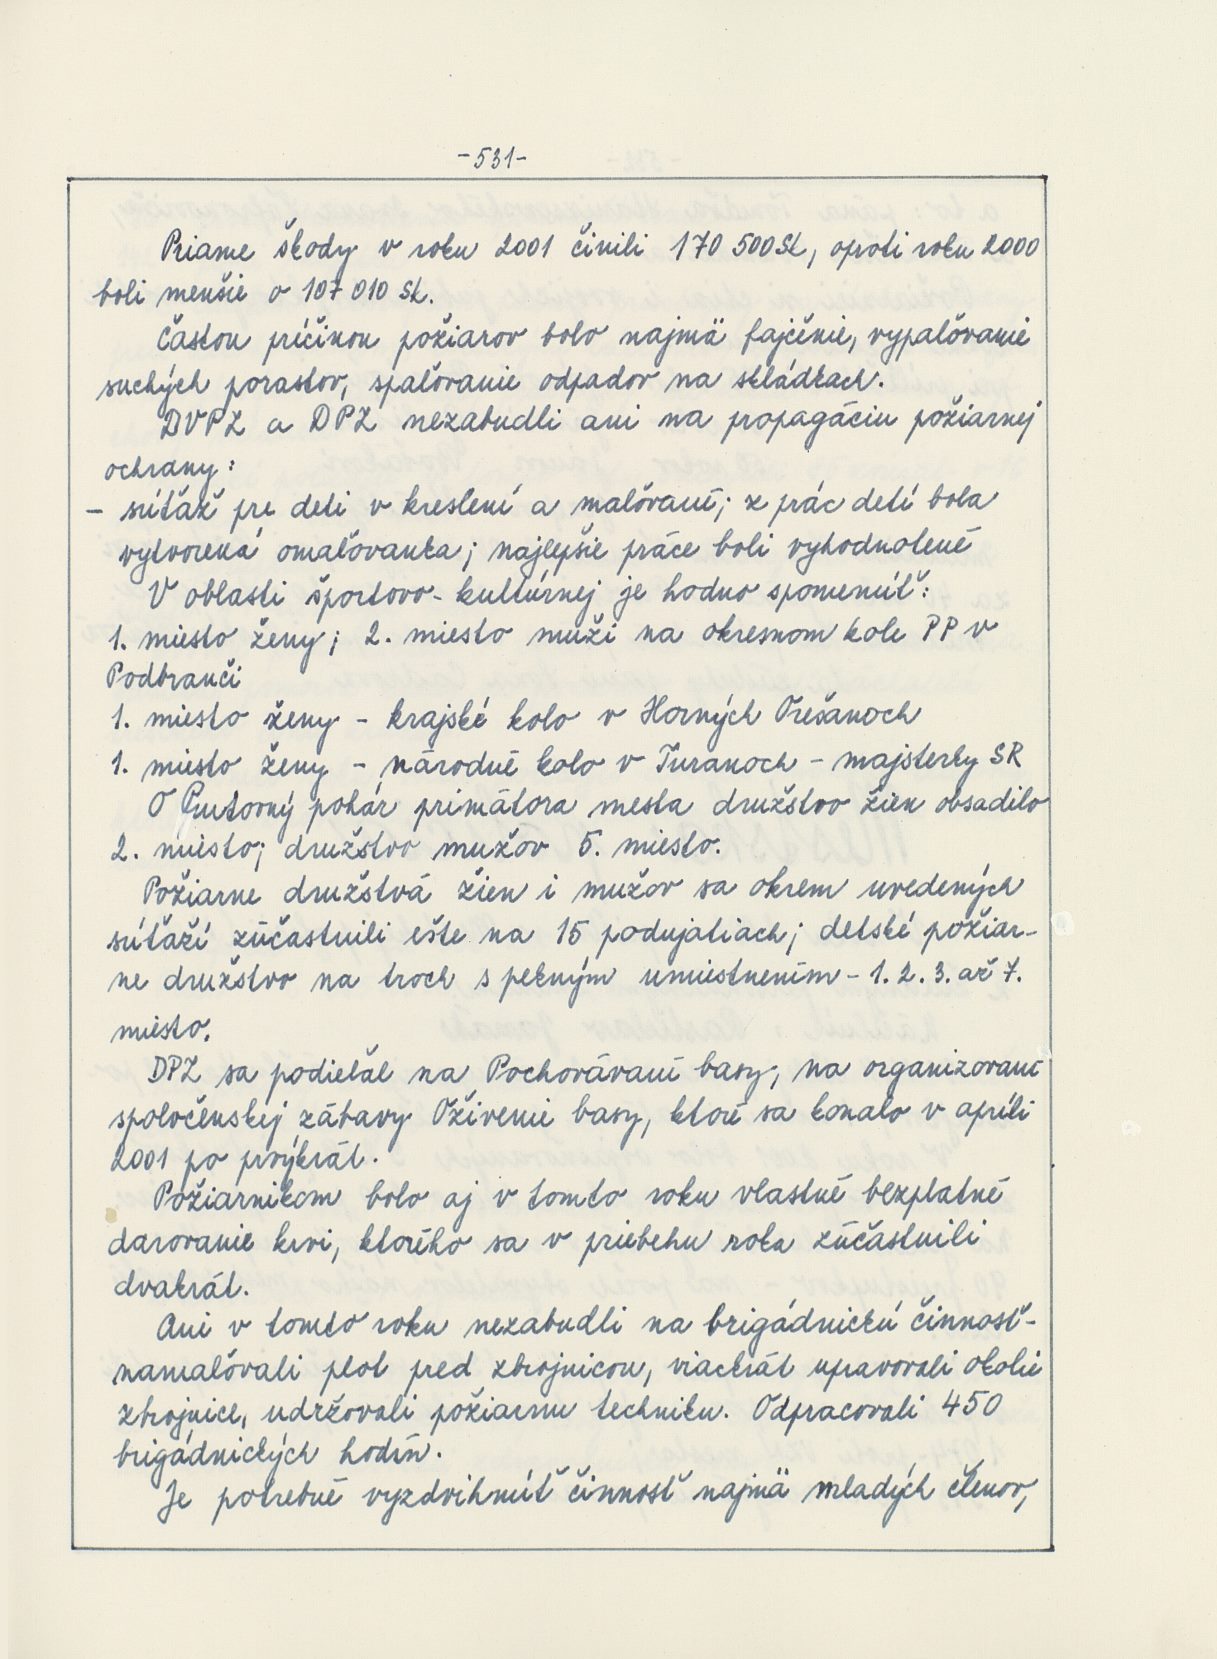 -531-
Priame škody v roku 2001 činili 170 500 Sk, oproti roku 2000
boli menšie o 107 010 Sk.
Častou príčinou požiarov bolo najmä fajčenie, vypaľovanie
suchých porastov, spaľovanie odpadov na skládkach.
DVPZ a DPZ nezabudli ani na propagáciu požiarnej
ochrany:
– súťaž pre deti v kreslení a maľovaní; z prác detí bola
vytvorená omaľovanka; najlepšie práce boli vyhodnotené
V oblasti športovo-kultúrnej je hodno spomenúť:
1. miesto ženy; 2. miesto muži na okresnom kole PP v
Podbranči
1. miesto ženy – krajské kolo v Horných Orešanoch
1. miesto ženy – národné kolo v Turanoch – majsterky SR
O Putovný pohár primátora mesta družstvo žien obsadilo
2. miesto; družstvo mužov 5. miesto.
Požiarne družstvá žien i mužov sa okrem uvedených
súťaží zúčastnili ešte na 15 podujatiach; detské požiar-
ne družstvo na troch s pekným umiestnením – 1. 2. 3. až 7.
miesto.
DPZ sa podieľal na Pochovávaní basy, na organizovaní
spoločenskej zábavy Oživenie basy, ktoré sa konalo v apríli
2001 po prvýkrát.
Požiarnikom bolo aj v tomto roku vlastné bezplatné
darovanie krvi, ktorého sa v priebehu roka zúčastnili
dvakrát.
Ani v tomto roku nezabudli na brigádnickú činnosť -
namaľovali plot pred zbrojnicou, viackrát upravovali okolie
zbrojnice, udržovali požiarnu techniku. Odpracovali 450
brigádnických hodín.
Je potrebné vyzdvihnúť činnosť najmä mladých členov,